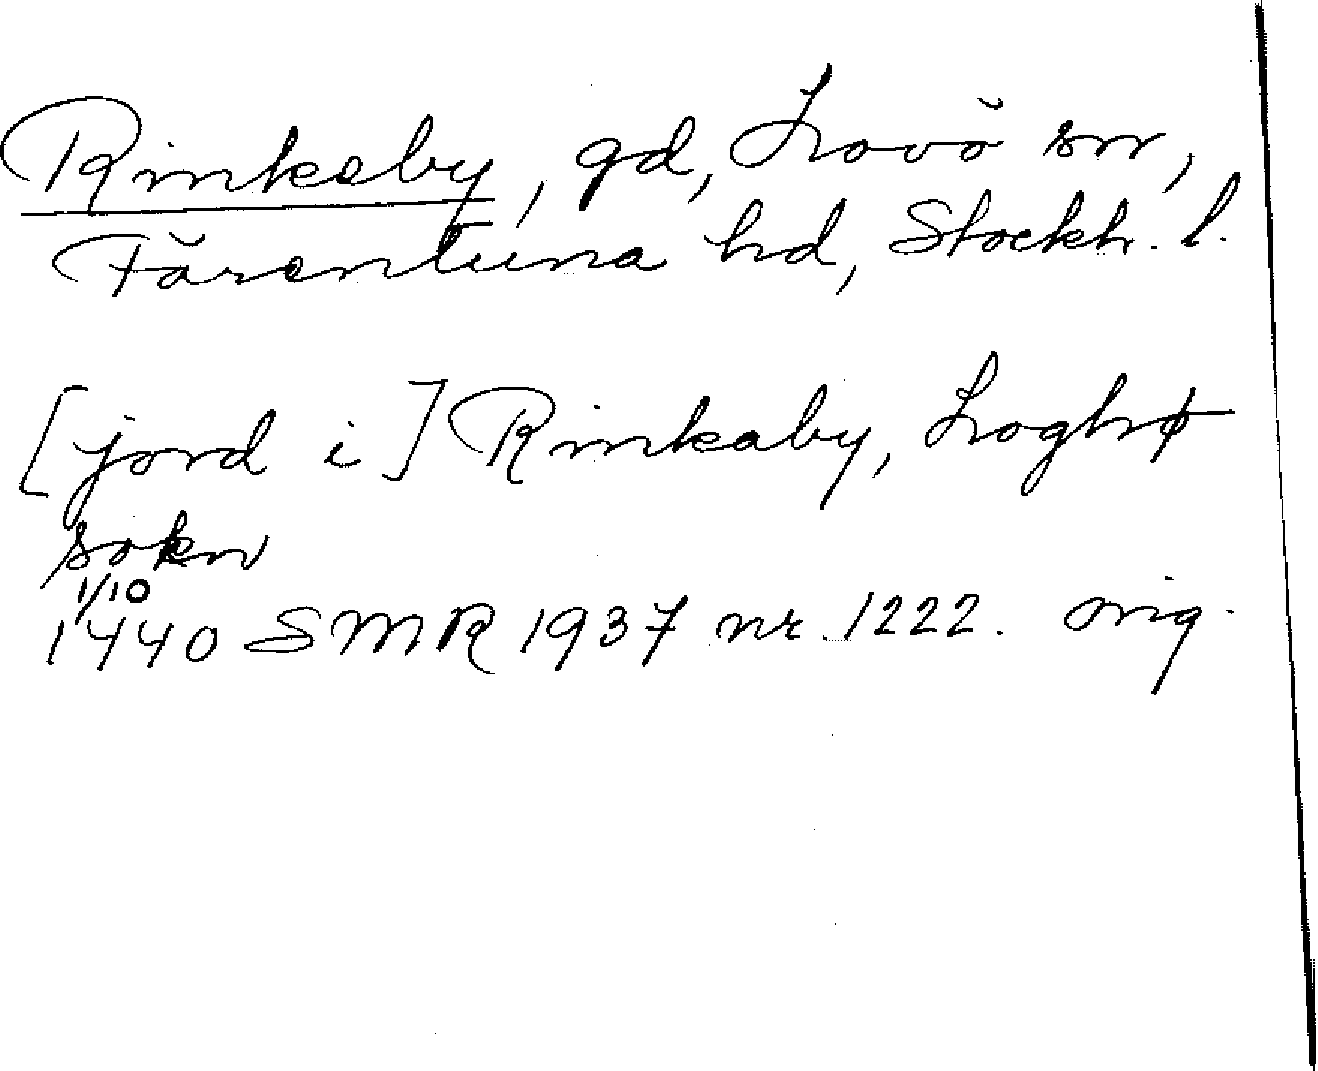 Rinkeby, gd, Lovö sn,
Färentuna hd, Stockh. l.
[jord i] Rinkaby, Loghø
sokn
1/10
1440 SMR 1937 nr. 1222. orig.